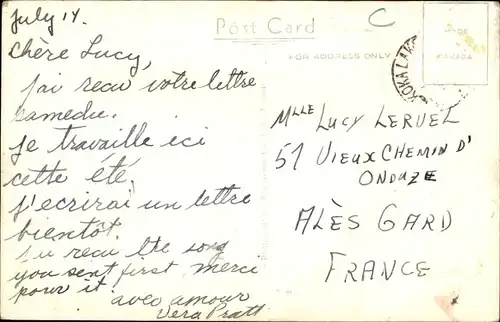 July 14.
Chère Lucy,
j'ai recu votre lettre
samedu.
Je travaille ici
cette été.
J'ecrirai un lettre
bientôt.
recu the song
you sent first merci
pour it avec amour
Vera Pratt
Post Card
C
FOR ADDRESS ONLY
MADE
CANADA
Mlle LUCY LERUEL
51 VIEUX CHEMIN D'
ONDUZE
ALÈS GARD
FRANCE